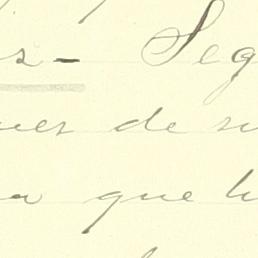 s- Seg
ues de su
a que h